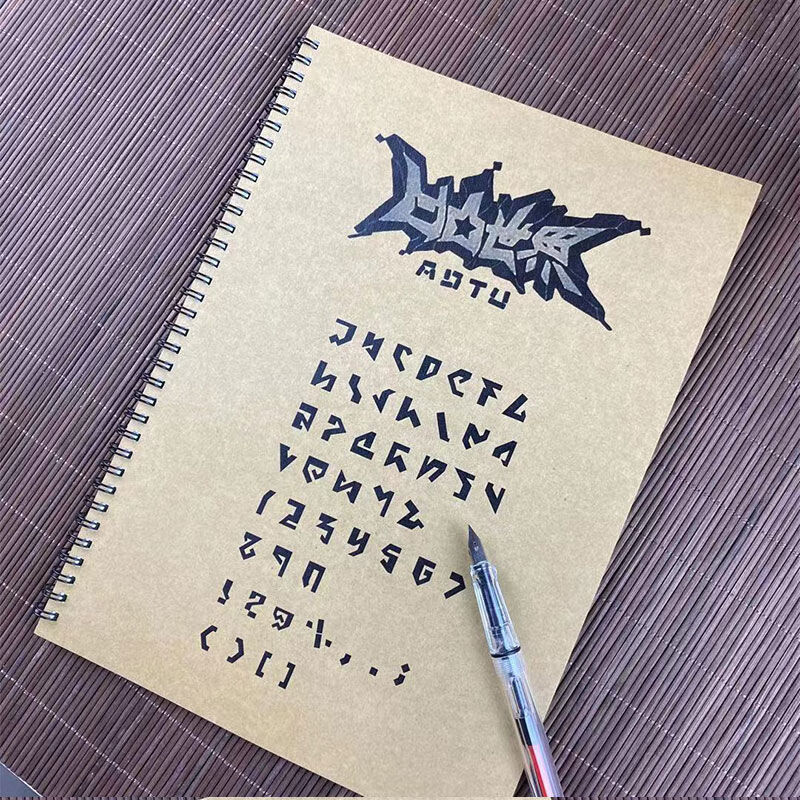 凹凸世界
AOTU
ABCDEFG
HIJKLMN
OPQRSTU
VWXYZ
1234567
890
!?@%,.;
()[]